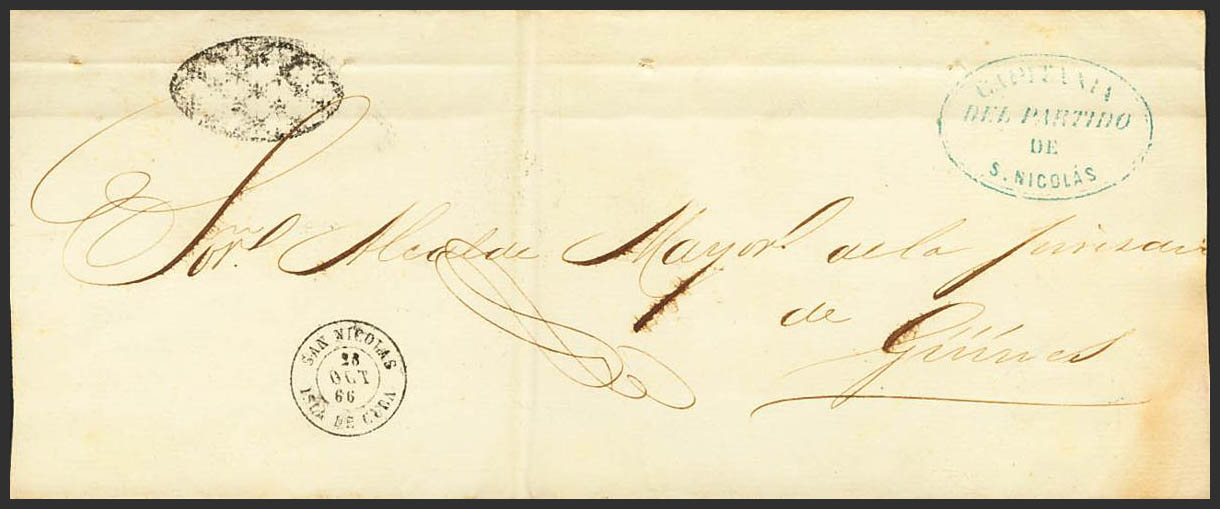 CAPITANIA
DEL PARTIDO
DE
S. NICOLÁS
Sor. Alcalde Mayor. de la
de
Güines
SAN NICOLAS
28
OCT
66
ISLA DE CUBA